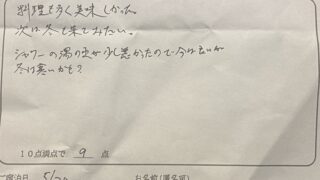 料理も多く美味しかった。
次は冬も来てみたい。
シャワーの湯の出が少し悪かったので今は良いが
冬は寒いかも?
10点満点で 9 点
ご宿泊日 5/ お名前(匿名可)